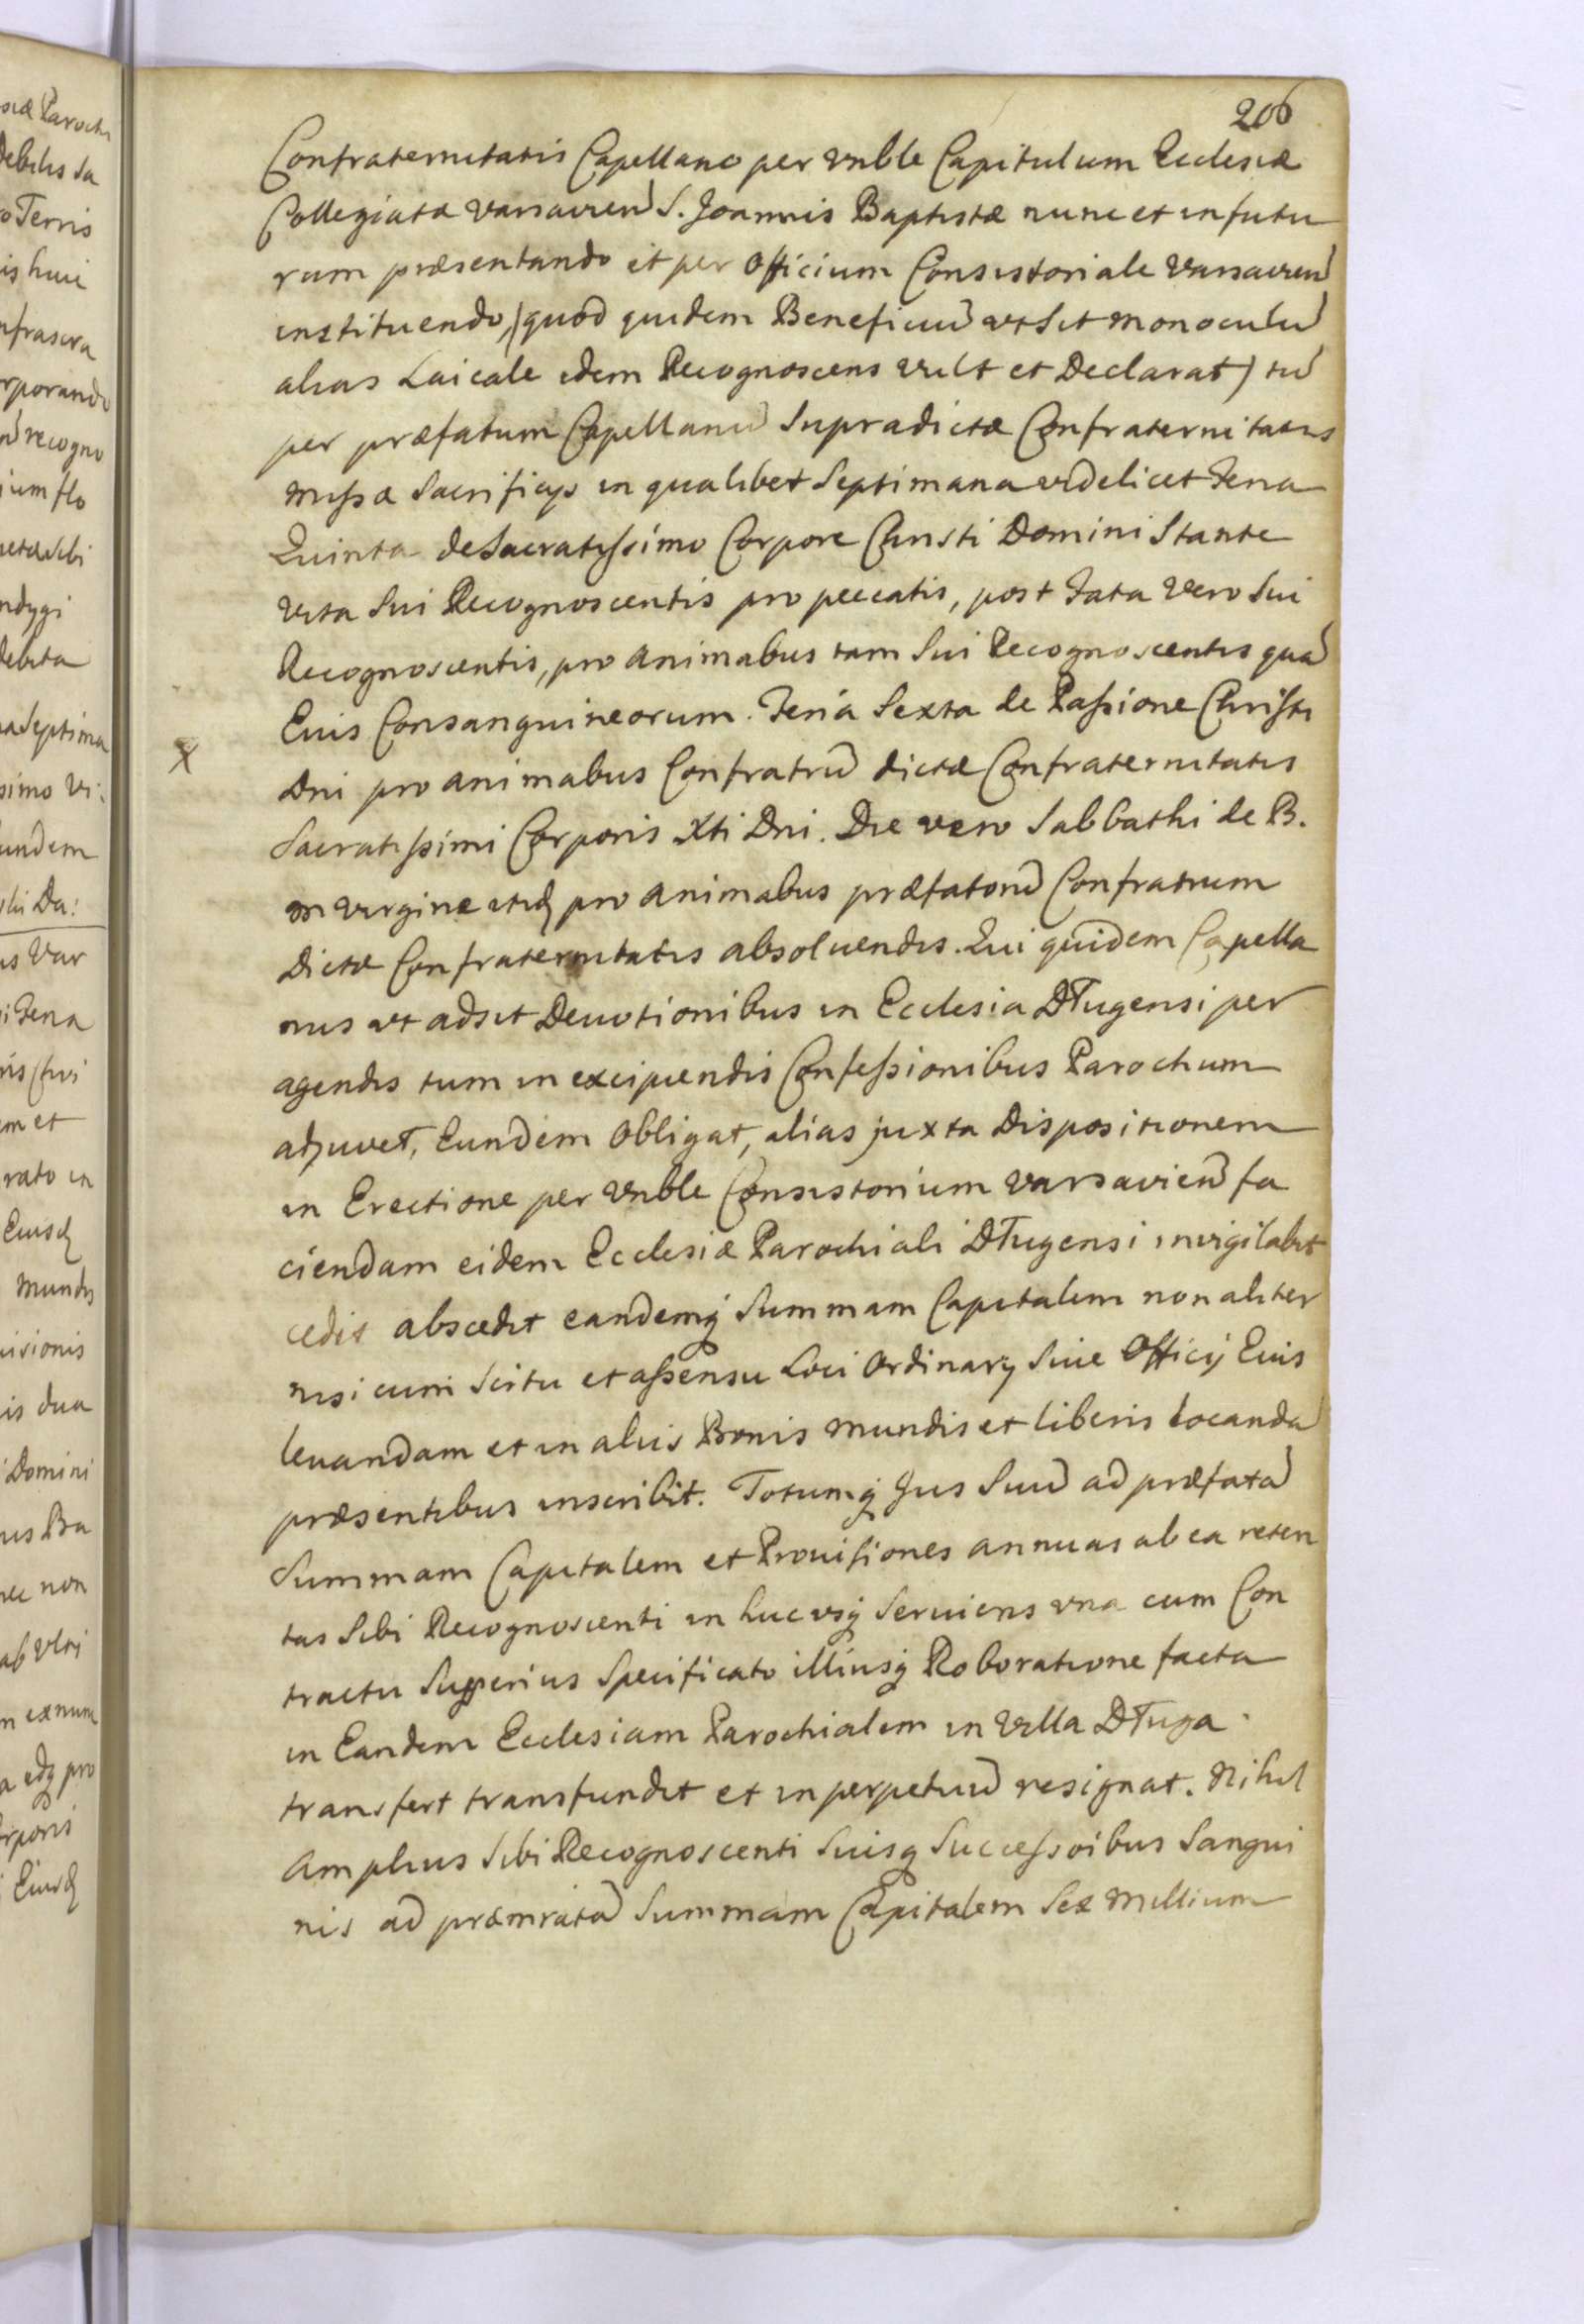 206
Confraternitatis Capellano per Vnble Capitulum Ecclesiæ
Collegiatæ Varsavien S. Joannis Baptistæ nunc et in futu
rum præsentando et per Officium Consistoriale Varsavien
instituendo, (quod quidem Beneficiũ vt sit monoculũ
alias Laicale idem Recognoscens vult et Declarat) tũ
per præfatum Capellanũ Supradictæ Confraternitatis
Missæ Sacrificijs in qualibet Septimana videlicet Feria
Quinta de Sacratissimo Corpore Christi Domini Stante
vita Sui Recognoscentis pro peccatis, post Fata Vero Sui
Recognoscentis, pro animabus tam Sui Recognoscentis quã
Eius Consanguineorum. Feria Sexta de Passione Christi
X
Dni pro animabus Confratrũ dictæ Confraternitatis
Sacratissimi Corporis Xti Dni. Die vero Sabbathi de B.
M Virgine itidq pro animabus præfatorũ Confratrum
Dictæ Confraternitatis absoluendis. Qui quidem Capella
nus vt adsit Deuotionibus in Ecclesia Długensi per
agendis tum in excipiendis Confessionibus Parochum
adjuvet, Eundem Obligat, alias juxta Dispositionem
in Erectione per Vnble Consistorium Varsavien fa
ciendam eidem Ecclesiæ Parochiali Długensi invigilabit
cedit abscedit eandemq Summam Capitalem non aliter
nisi cum Scitu et assensu Loci Ordinarij Siue Officij Eius
leuandam et in alijs Bonis mundis et liberis locandã
præsentibus inscribit. Totumq Jus Suũ ad præfatã
Summam Capitalem et Prouisiones annuas ab ea reten
tas Sibi Recognoscenti in hucusq Seruiens vna cum Con
tractu Superius Specificato illiusq Roboratione facta
in Eandem Ecclesiam Parochialem in Villa Długa
transfert transfundit et in perpetuũ resignat. Nihil
Amplius Sibi Recognoscenti Suisq Successoibus Sangui
nis ad præmissã Summam Capitalem Sex Millium